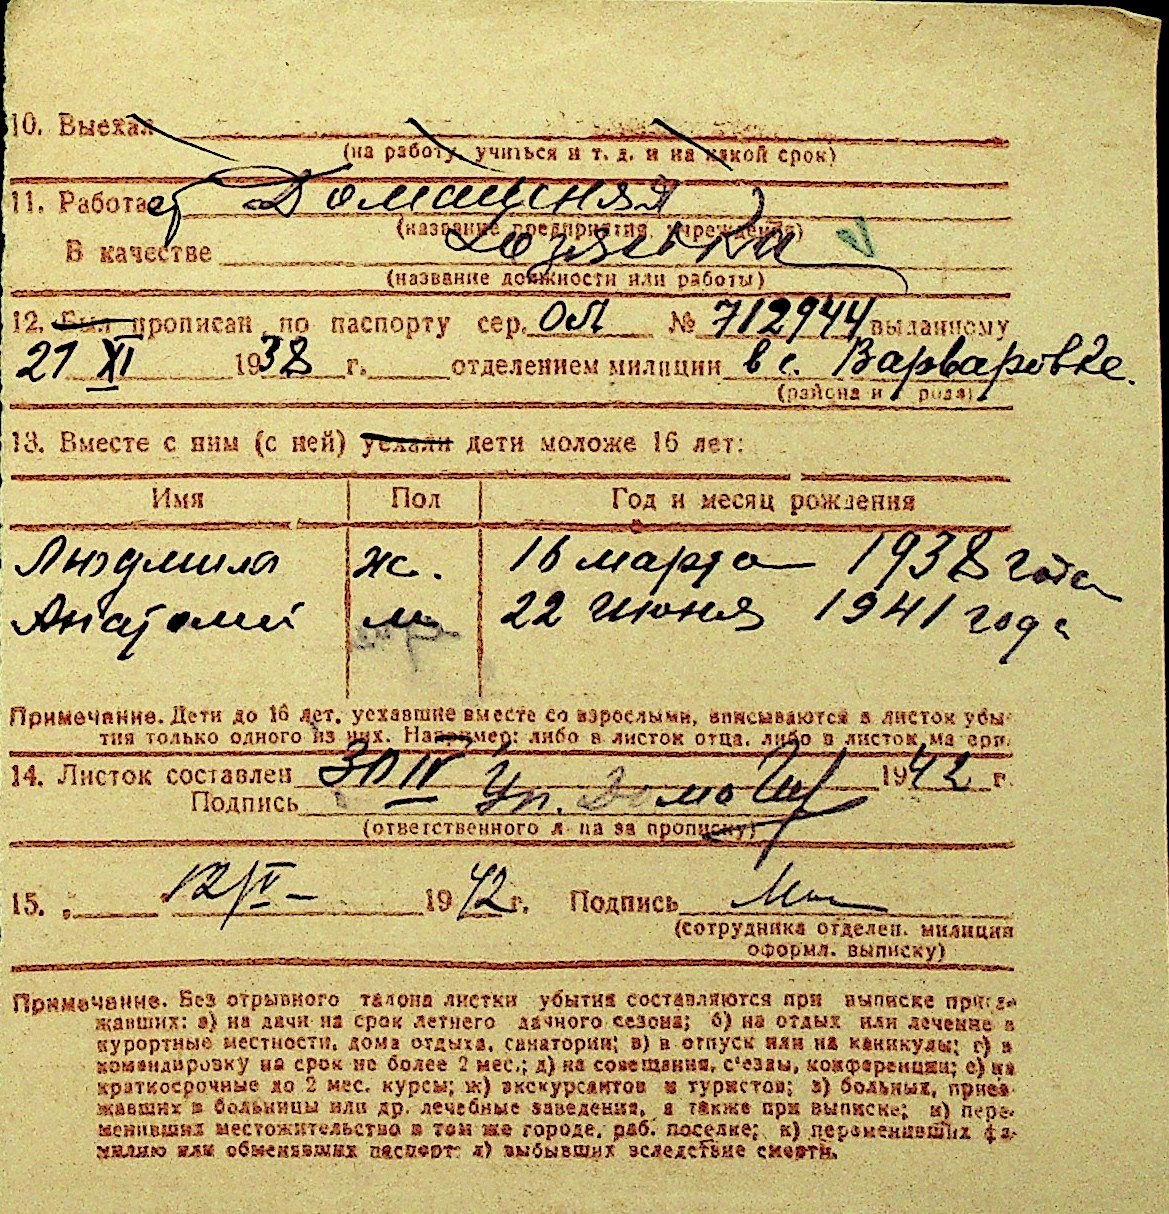 10. Выехал
(на работу, учиться и т. д. и на какой срок)
11. Работает Домашняя
(название предприятия, учреждения)
В качестве хозяйка
(название должности или работы)
12. Был прописан по паспорту сер. ОЛ № 712944 выданному
21 XI 1938 г. отделением милиции в с. Варваровке.
(района и рода)
13. Вместе с ним (с ней) уехали дети моложе 16 лет:
Имя Пол Год и месяц рождения
Людмила ж. 16 марта 1938 года
Анатолий м 22 июня 1941 года
Примечание. Дети до 16 лет, уехавшие вместе со взрослыми, вписываются в листок убы-
тия только одного из них. Например: либо в листок отца, либо в листок ма ери.
14. Листок составлен 30 IV 1942 г.
Подпись Уп. Домо
(ответственного л па за прописку)
15. 12/V- 1942 г. Подпись
(сотрудника отделен. милиции
оформл. выписку)
Примечание. Без отрывного талона листки убытия составляются при выписке приез-
жавших: а) на дачи на срок летнего дачного сезона; б) на отдых или лечение в
курортные местности, дома отдыха, санатории; в) в отпуск или на каникулы; г) в
командировку на срок не более 2 мес.; д) на совещания, с'езды, конференции; е) на
краткосрочные до 2 мес. курсы; ж) экскурсантов и туристов; з) больных, приез-
жавших в больницы или др. лечебные заведения, а также при выписке; и) пере-
менивших местожительство в том же городе, раб. поселке; к) переменивших фа-
милию или обменявших паспорт; л) выбывших вследствие смерти.